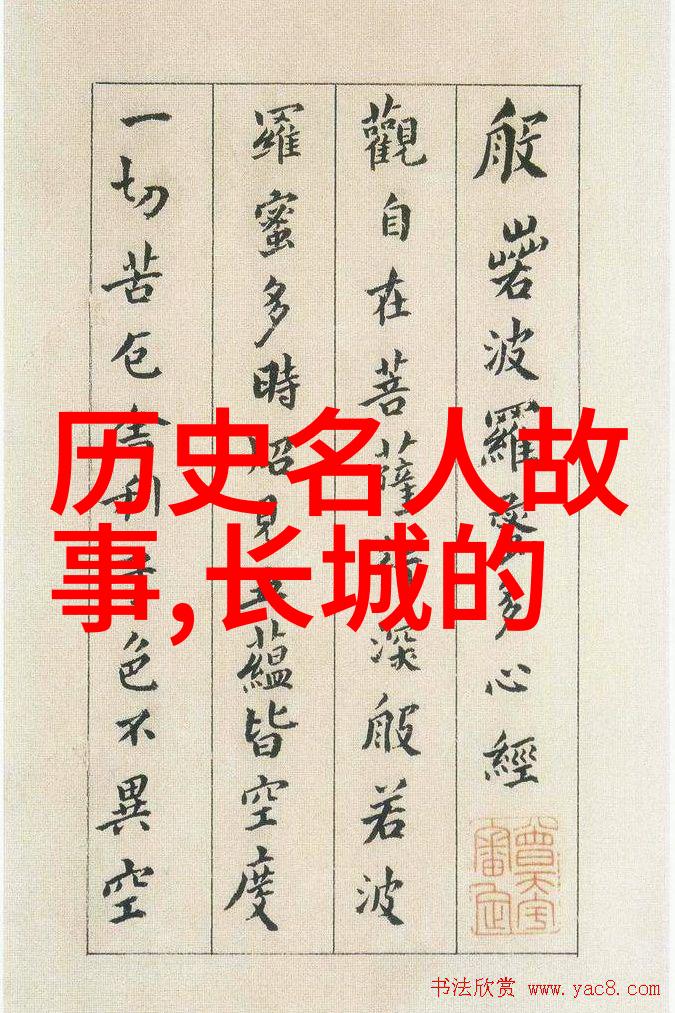 般若波羅蜜多心經
觀自在菩薩行深般若波
羅蜜多時照見五蘊皆空度
一切苦厄舍利子色不異空
历史名人故
事,长城的
书法欣赏 www.yac8.com